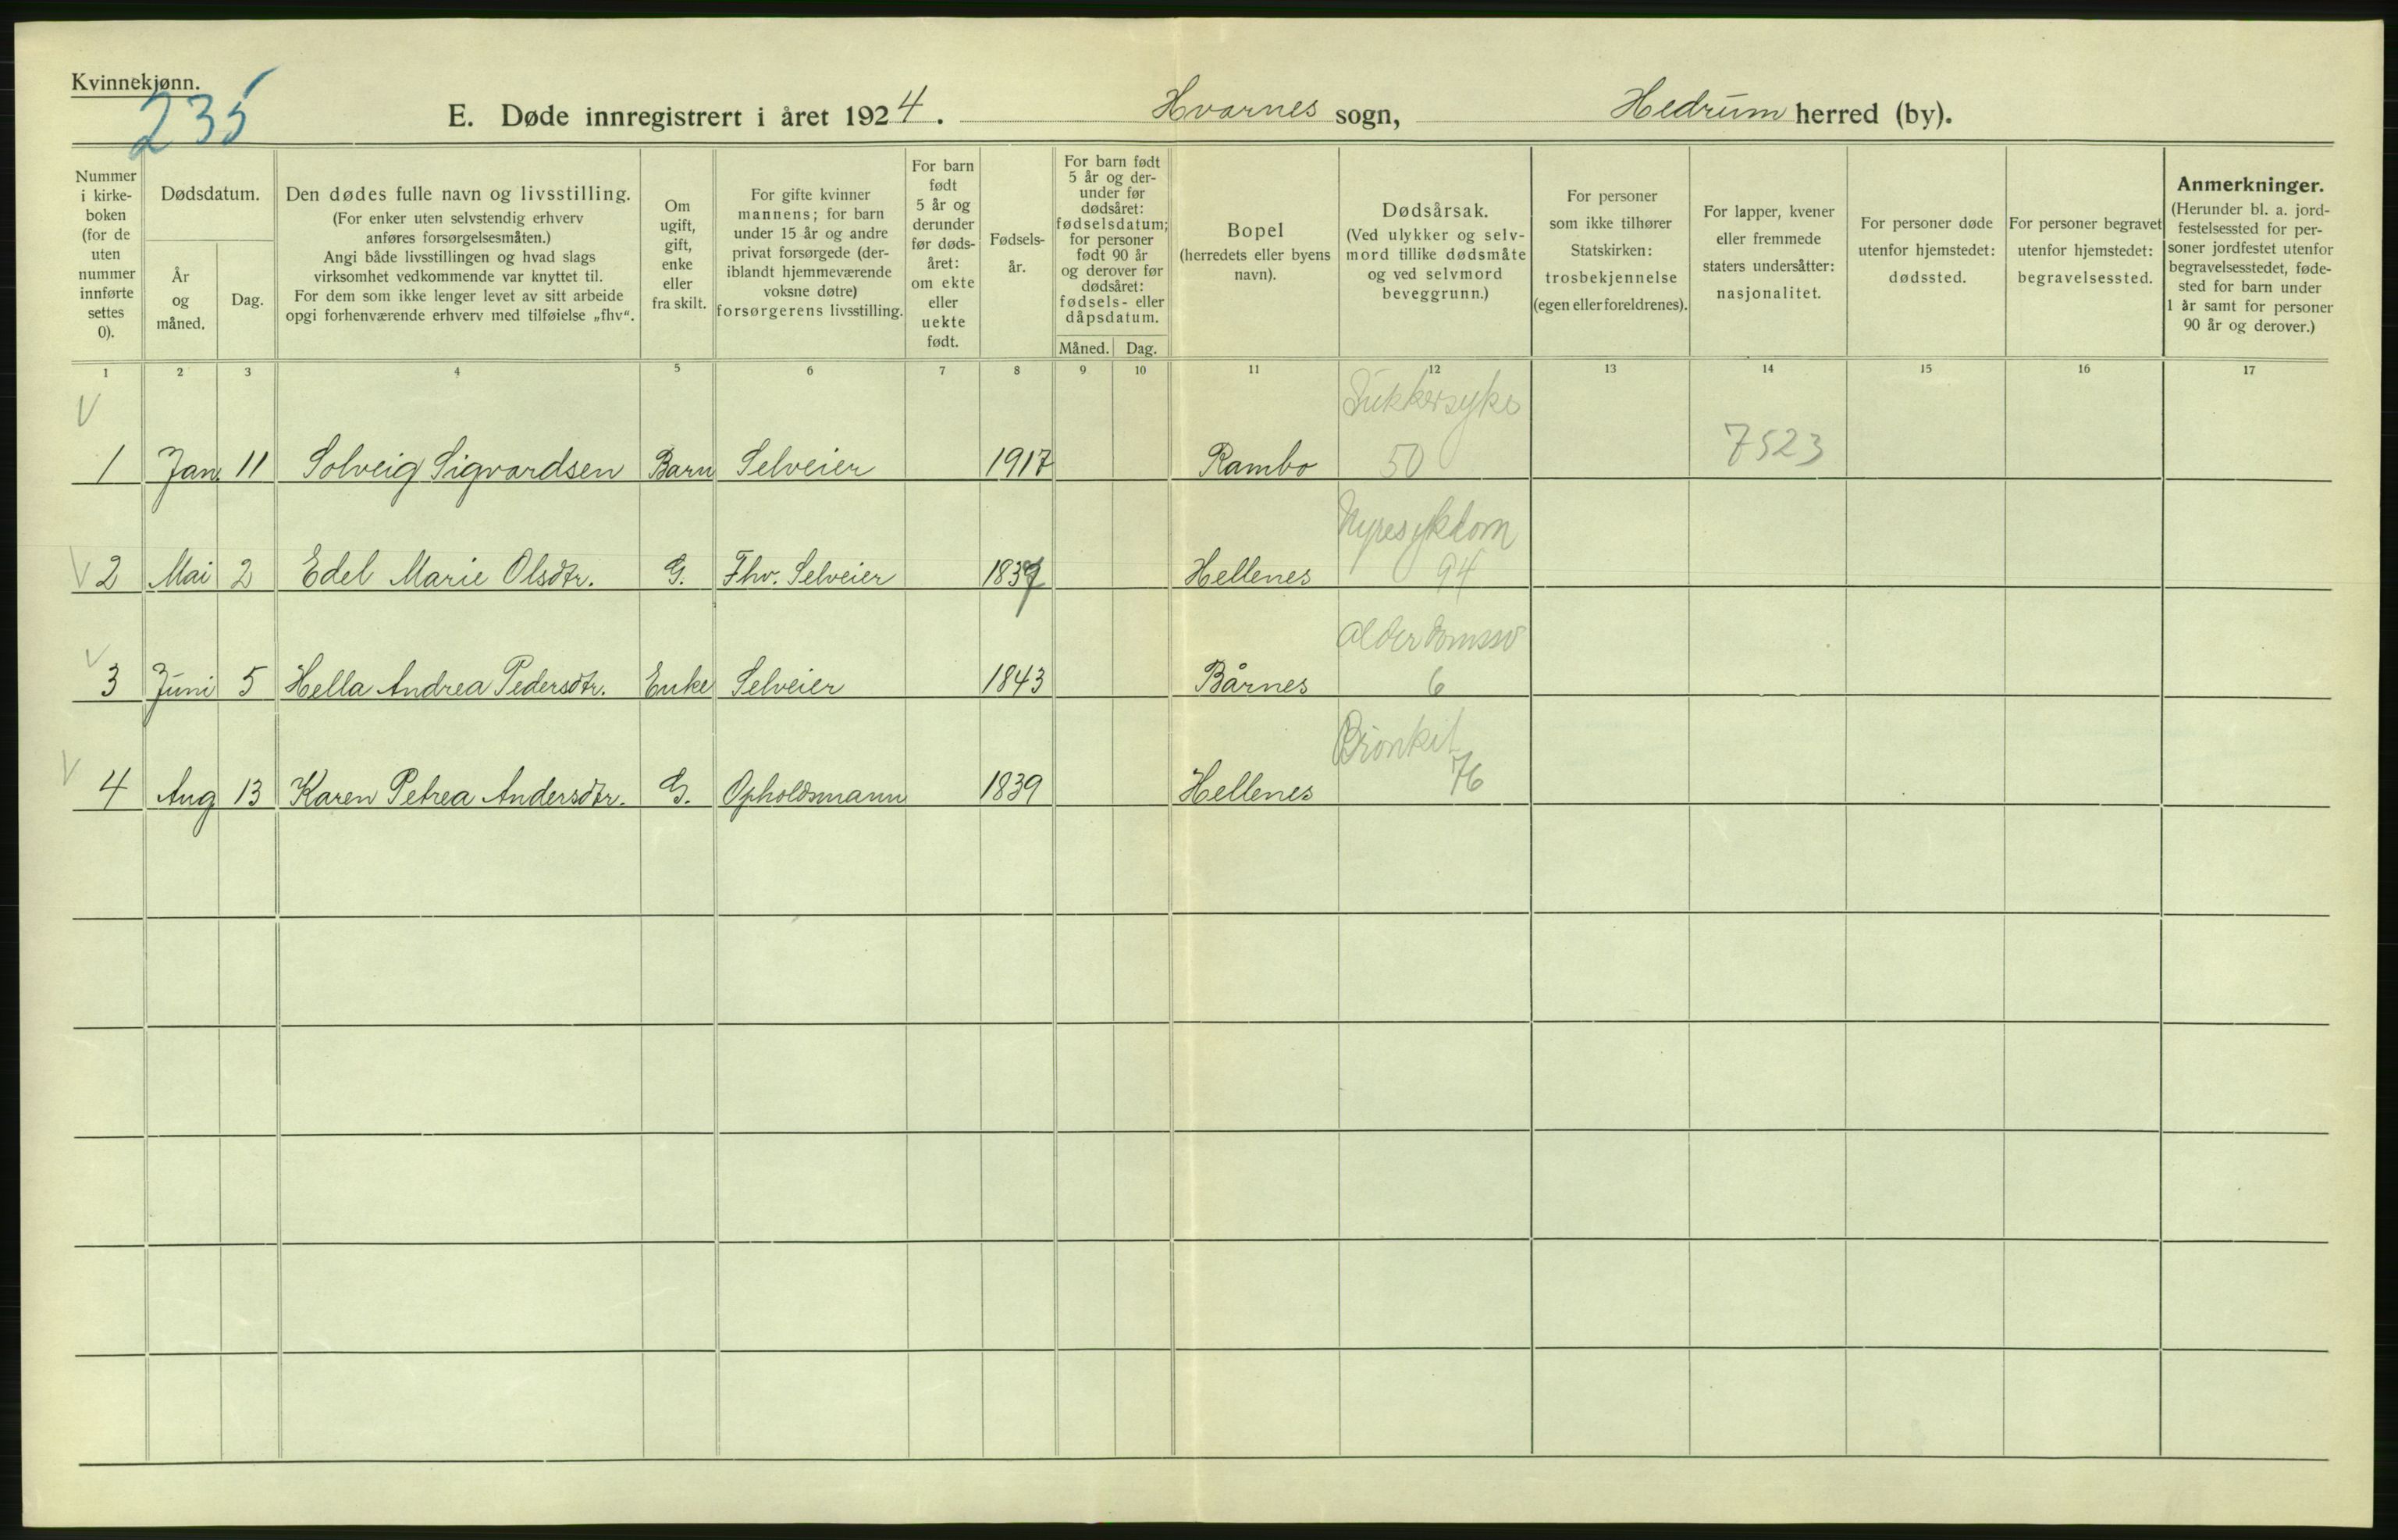 Kvinnekjønn.
235
E. Døde innregistrert i året 1924. Hvarnes sogn, Hedrum herred (by).
Nummer i kirkeboken (for de uten nummer innførte settes 0).
Dødsdatum.
År og måned.
Dag.
Den dødes fulle navn og livsstilling.
(For enker uten selvstendig erhverv
anføres forsørgelsesmåten.)
Angi både livsstillingen og hvad slags
virksomhet vedkommende var knyttet til.
For dem som ikke lenger levet av sitt arbeide
opgi forhenværende erhverv med tilføielse „fhv“.
Om
ugift,
gift,
enke
eller
fra skilt.
For gifte kvinner
mannens; for barn
under 15 år og andre
privat forsørgede (der-
iblandt hjemmeværende
voksne døtre)
forsørgerens livsstilling.
For barn
født
5 år og
derunder
før døds-
året:
om ekte
eller
uekte
født.
Fødsels-
år.
For barn født
5 år og der-
under før
dødsåret:
fødselsdatum;
for personer
født 90 år
og derover før
dødsåret:
fødsels- eller
dåpsdatum.
Måned. Dag.
Bopel
(herredets eller byens
navn).
Dødsårsak.
(Ved ulykker og selv-
mord tillike dødsmåte
og ved selvmord
beveggrunn.)
For personer
som ikke tilhører
Statskirken:
trosbekjennelse
(egen eller foreldrenes).
For lapper, kvener
eller fremmede
staters undersåtter:
nasjonalitet.
For personer døde
utenfor hjemstedet:
dødssted.
For personer begravet
utenfor hjemstedet:
begravelsessted.
Anmerkninger.
(Herunder bl. a. jord-
festelsessted for per-
soner jordfestet utenfor
begravelsesstedet, føde-
sted for barn under
1 år samt for personer
90 år og derover.)
1 2 3 4 5 6 7 8 9 10 11 12 13 14 15 16 17
Sukkersyke
1 Jan. 11 Solveig Sigvardsen Barn Selveier 1917 Rambo 50 7523
Nyresykdom
2 Mai 2 Edel Marie Olsdtr. G. Fhv. Selveier 1837 Hellenes 94
Alderdomssv
3 Juni 5 Hella Andrea Pedersdtr. Enke Selveier 1843 Bårnes 6
Bronkit
4 Aug 13 Karen Petrea Andersdtr. G. Opholdsmann 1839 Hellenes 76